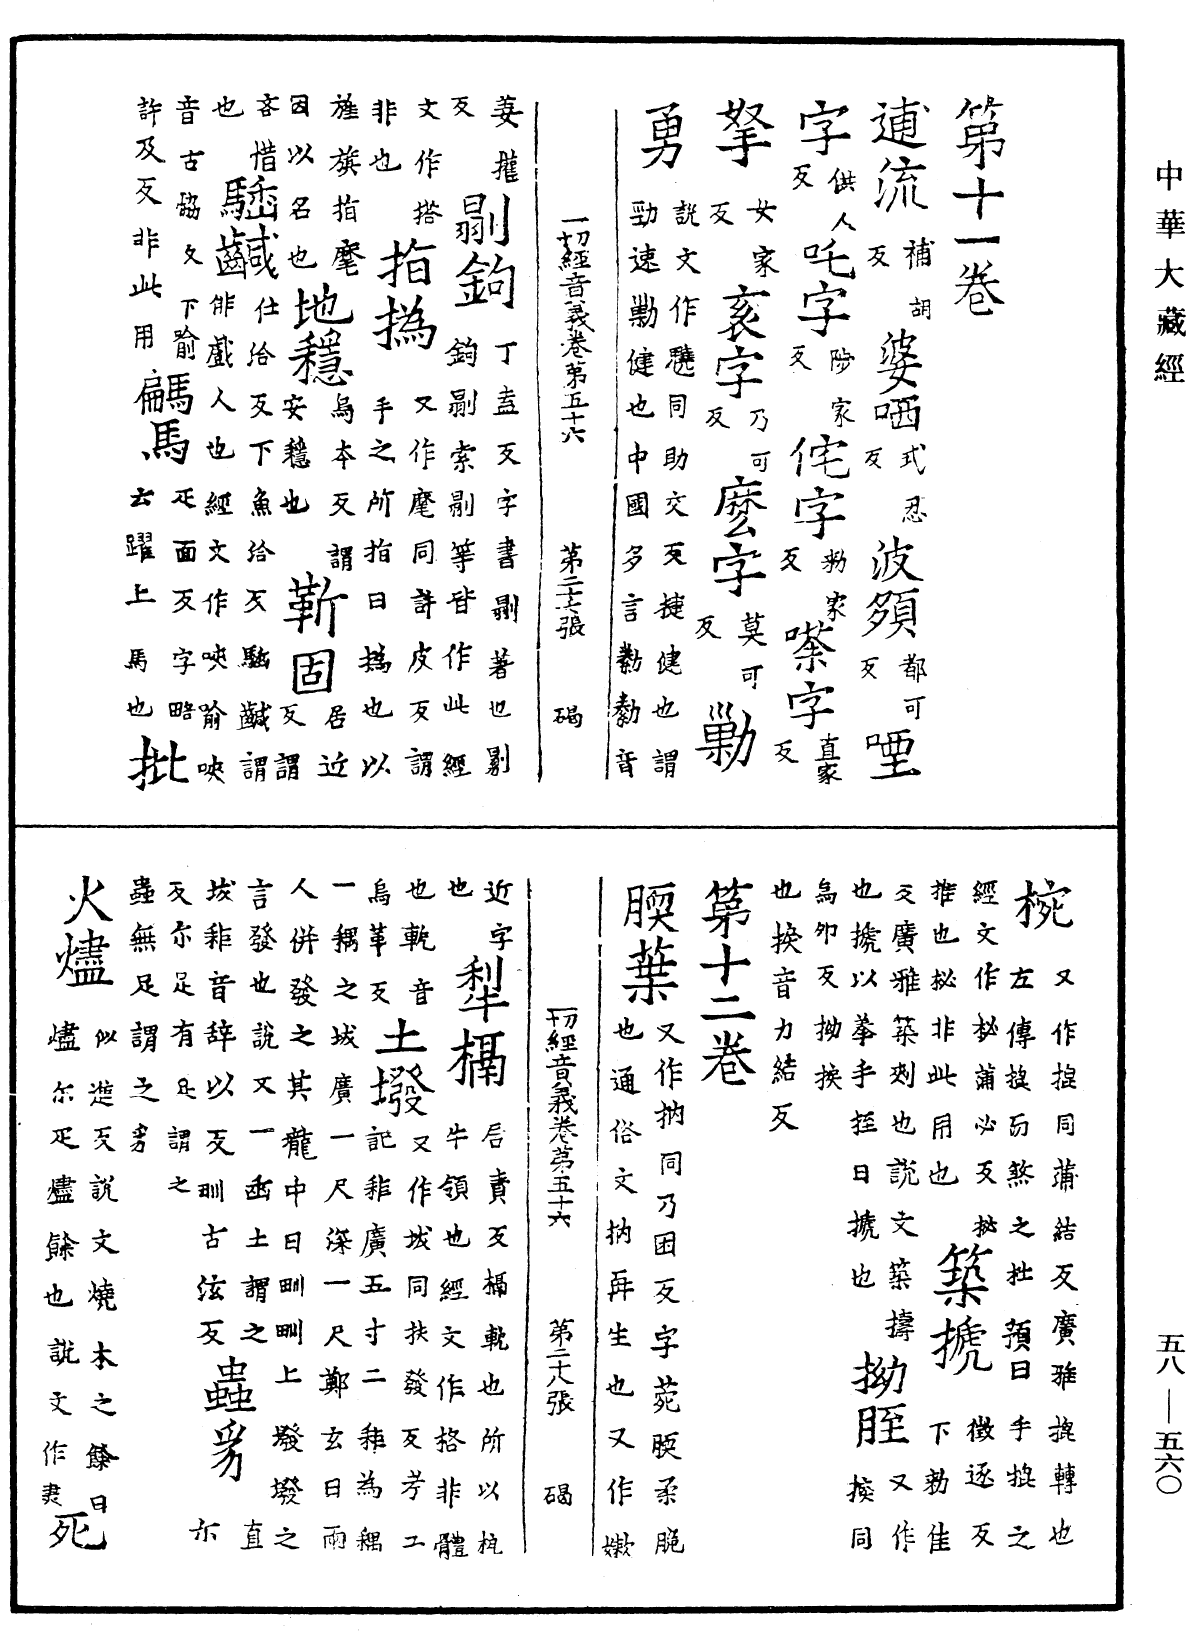 中華大藏經
第十一卷
逋流補胡反 婆哂式忍反 波頞都可反 㖶
字供人反 吒字陟家反 侘字勑家反 㗌字直家反
拏女家反 袤字乃可反 麽字莫可反 勦
勇說文作䠥同助交反捷健也謂
勁速勦健也中國多言勦勦音
一切經音義卷第五十六 第二十七張 碣
姜權反 剟鉤丁盍反字書剟著也剟
鉤剟索剟等皆作此經
文作搭非也 指撝又作麾同許皮反謂
手之所指曰撝也以
旌旗指麾因以名也 地穩烏本反謂
安穩也 靳固居近反謂
吝惜也 䮫鹹仕洽反下魚洽反䮫鹹謂
俳戲人也經文作唊喻唊
音古協反下喻
許及反非此用 騗馬疋面反字略
云躍上馬也 批
㧗又作捩同蒲結反廣雅捩轉也
左傳捩而煞之杜預曰手捩之
經文作柲蒲必反柲
推也柲非此用也 築搋徵逐反下勑佳
反廣雅築刺也說文築擣
也搋以拳手挃曰搋也 拗胵又作㨒同
烏卯反拗捩
也捩音力結反
第十二卷
腝葉又作抐同乃困反字苑腝柔脆
也通俗文抐再生也又作嫰
一切經音義卷第五十六 第二十八張 碣
近字也 犁槅居責反槅軛也所以扼
牛領也經文作挌非體
也軛音烏革反 土墢又作坺同扶發反考工
記耜廣五寸二耜為耦
一耦之坺廣一尺深一尺鄭玄曰兩
人併發之其壟中曰甽甽上墢墢之
言發也說文一臿土謂之坺耜音辭以反甽古泫反 蟲豸直
反尒足有足謂之
蟲無足謂之豸
火燼似進反說文燒木之餘曰
燼尒疋燼餘也說文作㶳 死
五八—五六〇